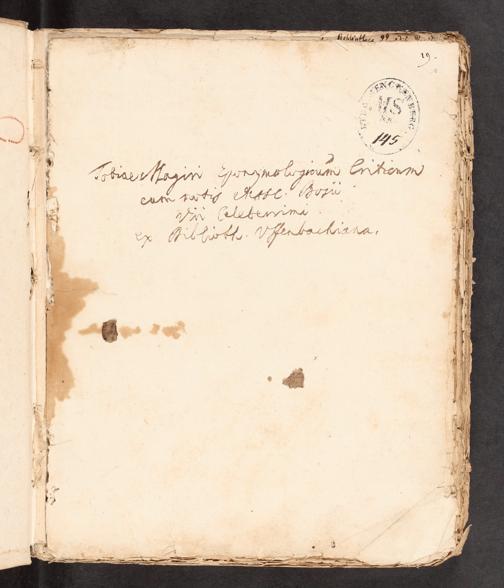 29.
BIBL. SENCKENBERG.
MS
145
Tobiae Magiri Eponymologicum Criticum
cum notis
Viri Celeberrimi
ex Biblioth. Uffenbachiana.